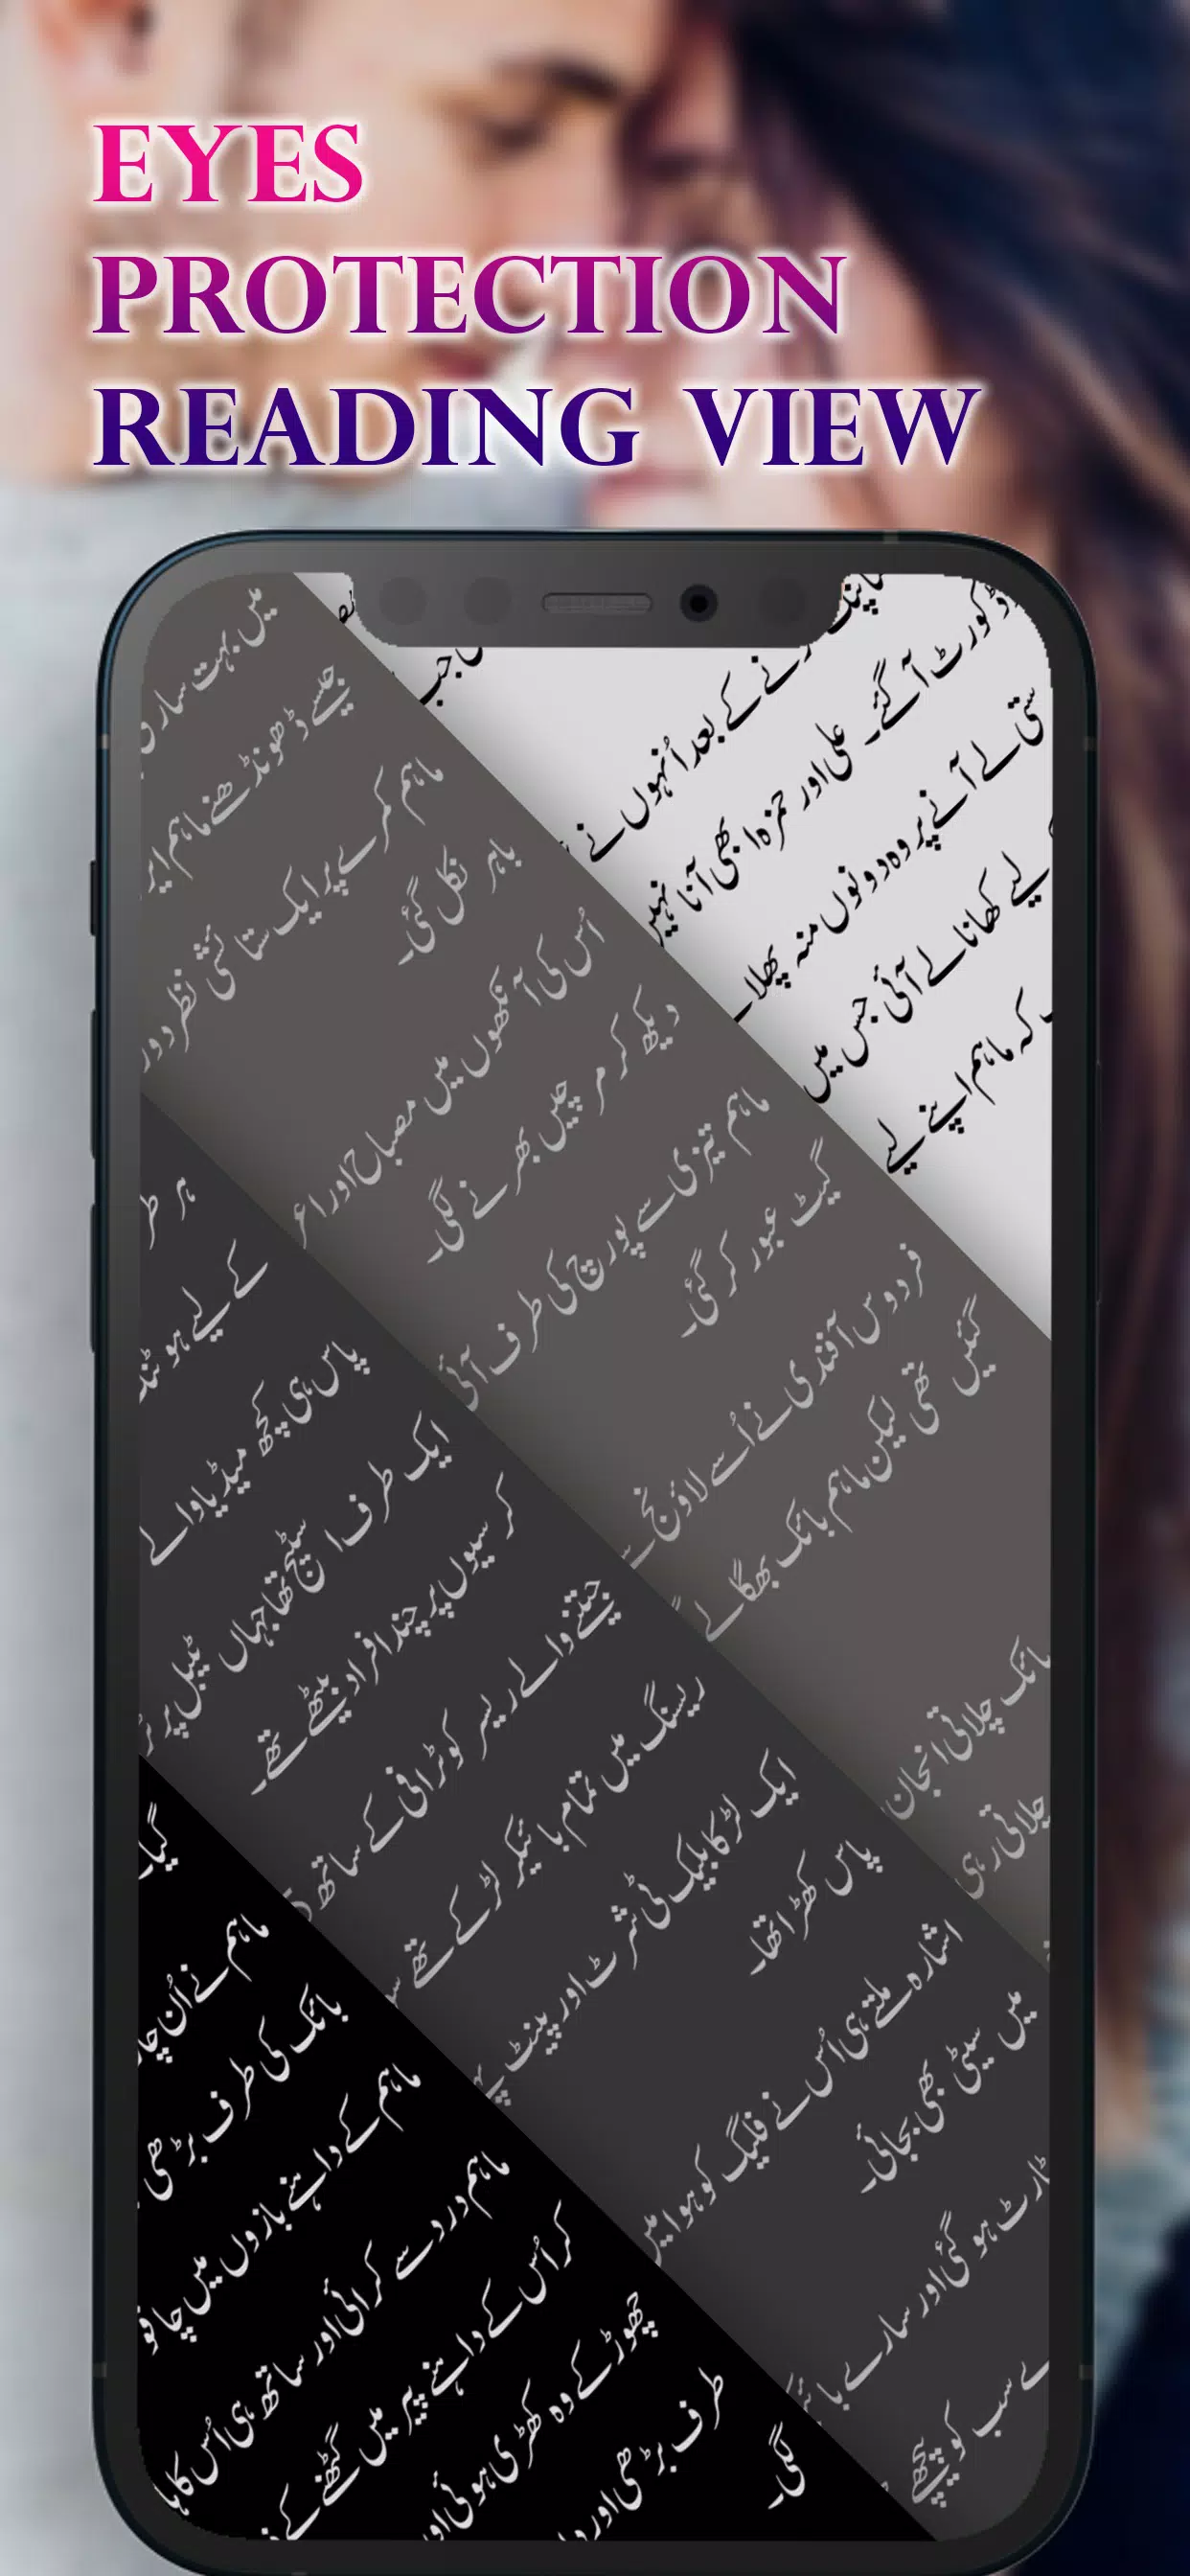 EYES
PROTECTION
READING VIEW
جب
نے کے بعد اُنہوں نے
کورٹ آگئے۔ علی اور حمزہ ابھی آنا نہیں
لے آنے پر وہ دونوں منہ پھلا
لیے کھانا لے آئی جس میں
کہ ماہم اپنے لیے
میں بہت ساری
جسے ڈھونڈھنے ماہم
ماہم کمرے پر ایک ستائشی نظر دور
باہر نکل گئی۔
اُس کی آنکھوں میں مصباح اور
دیکھ کر مرچیں بھرنے لگی۔
ماہم تیزی سے پورچ کی طرف آئی
گیٹ عبور کر گئی۔
فردوس آفندی نے اُسے لاؤنج
گئیں تھی لیکن ماہم بائک بھگا لے
بائک چلاتی انجان
چلاتی رہی
ہر طر
کے لیے ہوٹل
پاس ہی کچھ میڈیا والے
ایک طرف اسٹیج تھا جہاں ٹیبل پر
کرسیوں پر چند افراد بیٹھے تھے۔
جیتنے والے ریسر کو ٹرافی کے ساتھ
ریسنگ میں تمام بائیکر لڑکے تھے
ایک لڑکا بلیک ٹی شرٹ اور پینٹ
پاس کھڑا تھا۔
اشارہ ملتے ہی اُس نے فلیگ کو ہوا میں
میں سیٹی بھی بجائی۔
ٹارٹ ہو گئی اور سارے
سب کو پیچھے
گیا۔
ماہم نے اُن
بائک کی طرف بڑھی
ماہم کے داہنے بازوں میں چاقو
ماہم درد سے کرائی اور ساتھ ہی اُس کا
کر اُس کے داہنے پیر میں گھٹنے کے
چھوڑ کے وہ کھڑی ہوئی اور
طرف بڑھی اور
لگی۔